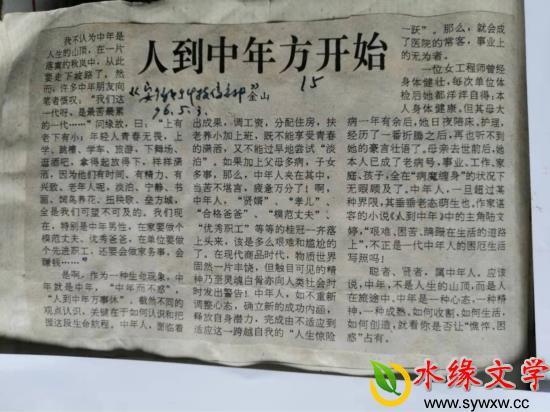 人到中年方开始
我不认为中年是
人生的山顶，在一片
落寞的秋风中，从此
要走下坡路了，然
而，许多中年朋友向
笔者慨叹：“我们这
一代呀，是最苦最累
的一代……”问缘故，曰，“上有
老下有小；年轻人青春无畏，上
学、跳槽、学车、旅游、下舞场、
逛酒吧，拿得起放得下，样样潇
洒，因为他们有时间、有精力、有
兴致。老年人呢，淡泊、宁静、书
画、饲鸟养花、扭秧歌、垒方城，
全是我们可望不可及的。我们现
在，特别是中年男性，在家要做个
模范丈夫、优秀爸爸，在单位要做
个先进职工，还要会做家务事，会
赚钱……”
是啊，作为一种生命现象，中
年就是中年，“中年而不惑”，
“人到中年万事休”，截然不同的
观点认识，关键在于如何认识和把
握这段生命旅程。中年人，面临着
出成果，调工资，分配住房，扶
老养小加上班，既不能享受青春
的潇洒，又不能过早地尝试“淡
泊”。如果加上父母多病，子女
多事，那么，中年人夹在其中，
当苦不堪言，疲惫万分了！啊，
中年人，“贤婿”、“孝儿”、
“合格爸爸”、“模范丈夫”、
“优秀职工”等等的桂冠一齐落
上头来，该是多么艰难和尴尬的
了。在现代商品时代，物质世界
固然一片丰饶，但触目可见的精
神乃至灵魂白骨亦向人类社会时
时发出警告！中年人，如不重新
调整心态，确立新的成功内涵，
释放自身潜力，完成由不适应到
适应这一跨越自我的“人生惊险
一跃”。那么，就会成
了医院的常客，事业上
的无为者。
一位女工程师曾经
身体健壮，每次单位体
检归她都洋洋自得：本
人身体健康。但其母大
病一年有余后，她日夜陪床、护理，
经历了一番折腾之后，再也听不到
她的豪言壮语了。母亲去世前后，她
本人已成了老病号，事业、工作、
家庭、孩子，全在“病魔缠身”的状况下
无暇顾及了。中年人，一旦超过某
种界限，其垂垂老态萌生也。作家谌
容的小说《人到中年》中的主角陆文
婷，“艰难、困苦、蹒跚在生活的道路
上”，不正是一代中年人的困厄生活
写照吗！
聪者，贤者，属中年人。应该
说，中年，不是人生的山顶，而是人
在旅途中。中年是一种心态，一种精
神，一种成熟。如何收割，如何生活，
如何创造，就看你是否让“憔悴、困
惑”占有。
96.5.3.
山
15
水缘文学
www.sywxw.cc